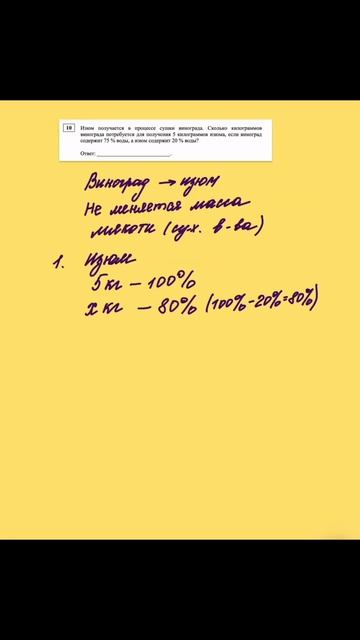 10 Изюм получается в процессе сушки винограда. Сколько килограммов
винограда потребуется для получения 5 килограммов изюма, если виноград
содержит 75 % воды, а изюм содержит 20 % воды?
Ответ: ___________________________.
Виноград → изюм
Не меняется масса
мякоти (сух. в-ва)
1. Изюм
5 кг – 100%
х кг – 80% (100%-20%=80%)